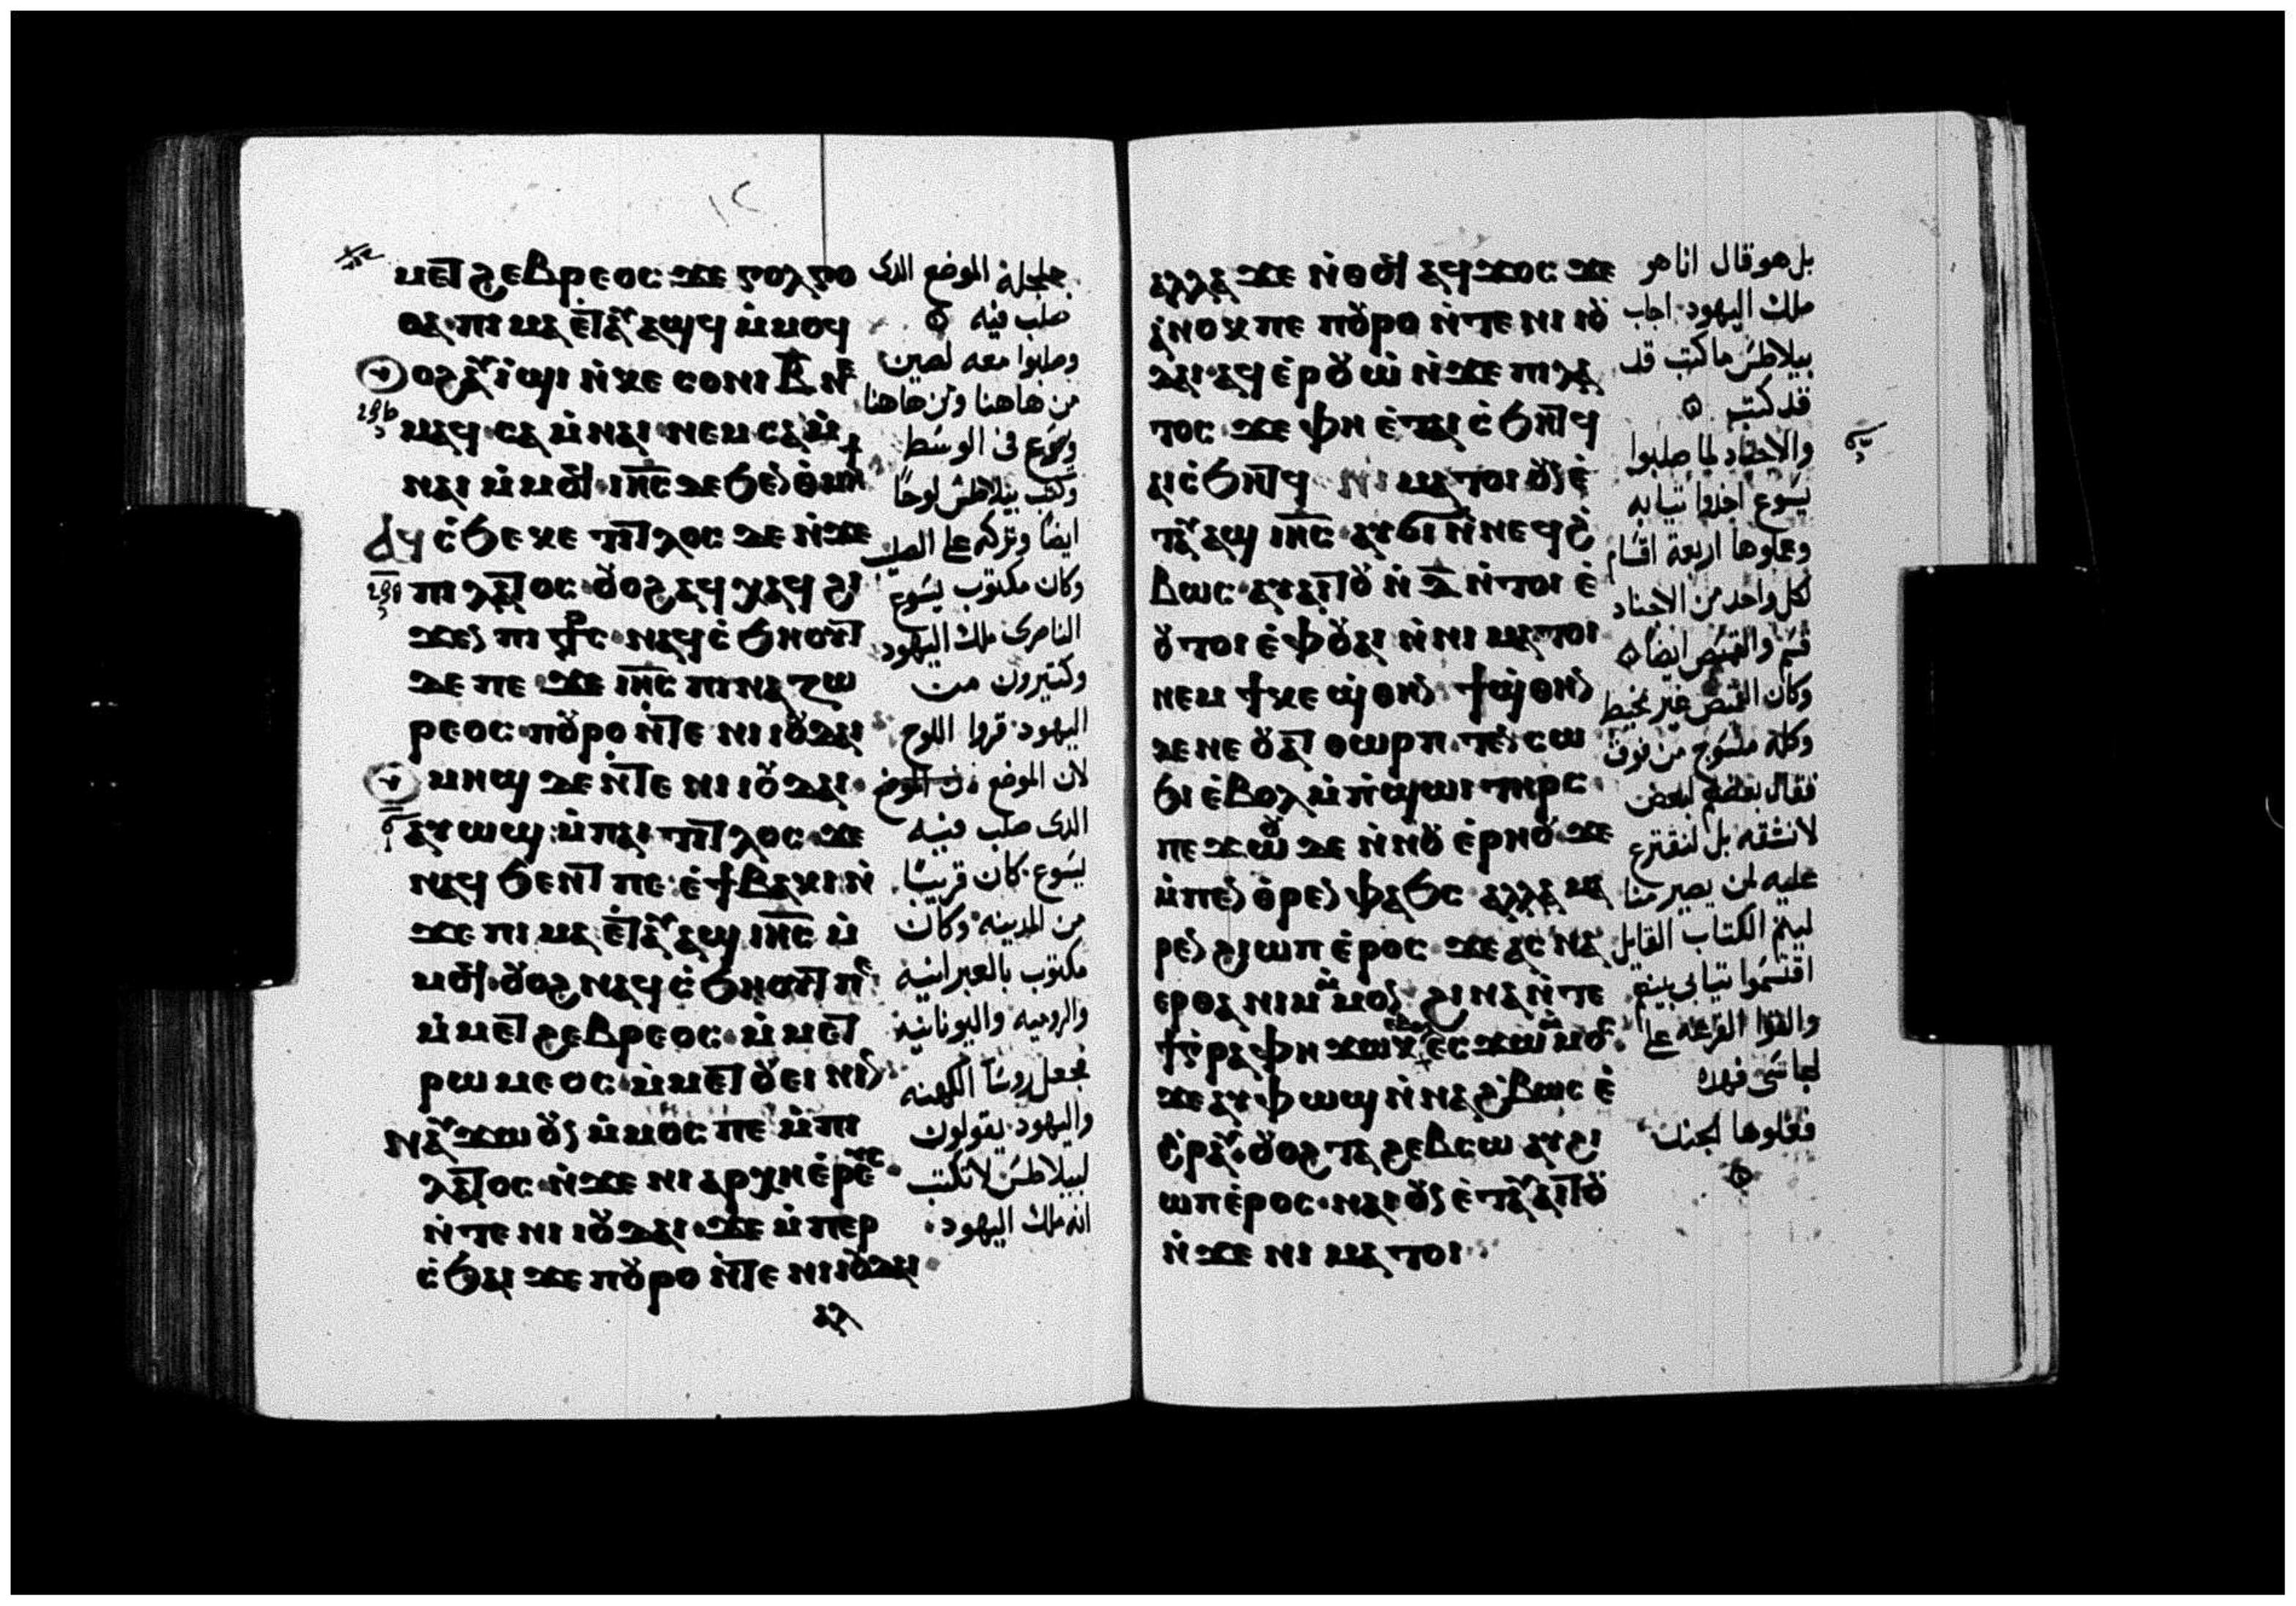 ⲙⲉⲧϩⲉⲃⲣⲉⲟⲥ ϫⲉ ⲅⲟⲗⲅⲟ
ⲑⲁ· ⲡⲓ ⲙⲁ ⲉ̇ⲧⲁⲩⲁϣϥ ⲙ̇ⲙⲟϥ
ⲟϩ ⲁⲩⲓ̇ϣⲓ ⲛ̇ⲕⲉ ⲥⲟⲛⲓ ⲃ̅ ⲛⲉ
ⲙⲁϥ· ⲥⲁ ⲙ̇ⲛⲁⲓ· ⲛⲉⲙ ⲥⲁ ⲙ̇
ⲛⲁⲓ ⲙ̇ⲙⲟϥ· ⲓⲏ̅ⲥ̅ ⲇⲉ ϧⲉⲛ ⲑ̇ⲙⲏϯ
ⲁϥⲥ̇ϧⲉ ⲕⲉ ⲧⲓⲧⲗⲟⲥ ⲇⲉ ⲛ̇ϫⲉ
ⲡⲓⲗⲁⲧⲟⲥ· ⲟⲩⲟϩ ⲁϥⲭⲁϥ ϩⲓ
ϫⲉⲛ ⲡⲓ ⳨ⲥ· ⲛⲁϥⲥ̇ϧⲏⲟⲩⲧ
ⲇⲉ ⲡⲉ ϫⲉ ⲓⲏ̅ⲥ̅ ⲡⲓⲛⲁⲍⲱ
ⲣⲉⲟⲥ· ⲡⲟⲩⲣⲟ ⲛ̇ⲧⲉ ⲛⲓ ⲓⲟⲩⲇⲁⲓ
ⲙⲏϣ ⲇⲉ ⲛ̇ⲧⲉ ⲛⲓ ⲓⲟⲩⲇⲁⲓ·
ⲁⲩⲱϣ ⲙ̇ⲡⲁⲓ ⲧⲓⲧⲗⲟⲥ· ϫⲉ
ⲛⲁϥϧⲉⲛⲧ ⲡⲉ· ⲉ̇ϯⲃⲁⲕⲓ ⲛ̇
ϫⲉ ⲡⲓ ⲙⲁ ⲉ̇ⲧⲁⲩⲁϣ ⲓⲏ̅ⲥ̅ ⲙ̇
ⲙⲟϥ· ⲟⲩⲟϩ ⲛⲁϥⲥ̇ϧⲏⲟⲩⲧ ⲡⲉ
ⲙ̇ⲙⲉⲧϩⲉⲃⲣⲉⲟⲥ· ⲙ̇ⲙⲉⲧ
ⲣⲱⲙⲉⲟⲥ· ⲙ̇ⲙⲉⲧⲟⲩⲉⲓⲛⲓⲛ
ⲛⲁⲩϫⲱ ⲟⲩⲛ ⲙ̇ⲙⲟⲥ ⲡⲉ ⲙ̇ⲡⲓ
ⲗⲁⲧⲟⲥ· ⲛ̇ϫⲉ ⲛⲓ ⲁⲣⲭⲏⲉ̇ⲣⲉⲩⲥ·
ⲛ̇ⲧⲉ ⲛⲓ ⲓⲟⲩⲇⲁⲓ· ϫⲉ ⲙ̇ⲡⲉⲣ
ⲥ̇ϧⲁⲓ ϫⲉ ⲡⲟⲩⲣⲟ ⲛ̇ⲧⲉ ⲛⲓ ⲓⲟⲩⲇⲁⲓ·
ⲁⲗ
جلجلة الموضع الدى
صلب فيه
وصلبوا معه لصين
من هاهنا ومن هاهنا
ويسوع فى الوسط
وكتب بيلاطس لوحا
ايضا وتركه على الصليب
وكان مكتوب يسوع
الناصرى ملك اليهود
وكتيرون من
اليهود قروا اللوح
لان الموضع ن الموضع
الدى صلب فيه
يسوع كان قريبا
من المدينه وكان
مكتوب بالعبرانيه
والروميه واليونانيه
فجعل روسا الكهنه
واليهود يقولون
لبيلاطس لا تكتب
انه ملك اليهود
ⲁⲗⲗⲁ ϫⲉ ⲛ̇ⲑⲟϥ ⲁϥϫⲟⲥ ϫⲉ
ⲁⲛⲟⲕ ⲡⲉ ⲡⲟⲩⲣⲟ ⲛ̇ⲧⲉ ⲛⲓ ⲓⲟⲩ
ⲇⲁⲓ· ⲁϥⲉ̇ⲣⲟⲩⲱ̇ ⲛ̇ϫⲉ ⲡⲓⲗⲁ
ⲧⲟⲥ ϫⲉ ⲫⲏ ⲉ̇ⲧⲁⲓⲥ̇ϧⲏⲧϥ
ⲁⲓⲥ̇ϧⲏⲧϥ ⲛⲓ ⲙⲁⲧⲟⲓ ⲟⲩⲛ ⲉ̇
ⲧⲁⲩⲁϣ ⲓⲏ̅ⲥ̅ ⲁⲩϭⲓ ⲛ̇ⲛⲉϥϩ̇
ⲃⲱⲥ· ⲁⲩⲁⲓⲧⲟⲩ ⲛ̇ ⲇ̅ ⲛ̇ⲧⲟⲓ ⲉ̇
ⲟⲩⲧⲟⲓ ⲉ̇ⲫⲟⲩⲁⲓ ⲛ̇ⲛⲓ ⲙⲁⲧⲟⲓ
ⲛⲉⲙ ϯⲕⲉ ϣ̇ⲑⲏⲛ ϯϣ̇ⲑⲏⲛ
ⲇⲉ ⲛⲉ ⲟⲩⲁⲧ ⲑⲱⲣⲡ· ⲧⲉ ⲛⲥⲱ
ϧⲓ ⲉ̇ⲃⲟⲗ ⲙ̇ⲡ̇ϣⲱⲓ ⲧⲏⲣⲥ·
ⲡⲉϫⲱⲟⲩ ⲇⲉ ⲛ̇ⲛⲟⲩ ⲉ̇ⲣⲏⲟⲩ ϫⲉ
ⲙ̇ⲡⲉⲛⲑ̇ⲣⲉⲛ ⲫⲁϧⲥ ⲁⲗⲗⲁ ⲙⲁ
ⲣⲉⲛ ϩⲓⲱⲡ ⲉ̇ⲣⲟⲥ ϫⲉ ⲁⲥ ⲛⲁ
ⲉⲣⲑⲁ ⲛⲓⲙ ⲙ̇ⲙⲟⲛ· ϩⲓⲛⲁ ⲛ̇ⲧⲉ
ϯⲅ̇ⲣⲁⲫⲏ ϫⲱⲕ ⲉⲃⲟⲗ ⲉⲥϫⲱ ⲙ̇ⲙⲟⲥ·
ϫⲉ ⲁⲩⲫⲱϣ ⲛ̇ⲛⲁϩ̇ⲃⲱⲥ ⲉ̇
ϩ̇ⲣⲁⲩ· ⲟⲩⲟϩ ⲧⲁ ϩⲉⲃⲥⲱ ⲁⲩϩⲓ
ⲱⲡ ⲉ̇ⲣⲟⲥ· ⲛⲁⲓ ⲟⲩⲛ ⲉ̇ⲧⲁⲩⲁⲓⲧⲟⲩ
ⲛ̇ϫⲉ ⲛⲓ ⲙⲁⲧⲟⲓ·
بل هو قال انا هو
ملك اليهود اجاب
بيلاطس ما كتب قد
قد كتبت
والاجناد لما صلبوا
يسوع اخدوا تيابه
وعملوها اربعة اقسام
لكل واحد من الاجناد
قسم والقميص ايضا
وكان القميص غير مخيط
وكله منسوج من فوق
فقال بعضهم لبعض
لا نشقه بل لنقترع
عليه لمن يصير منا
ليتم الكتاب القايل
اقتسموا تيابى بينهم
والقوا القرعه على
لباسى فهده
فعلوها الجند